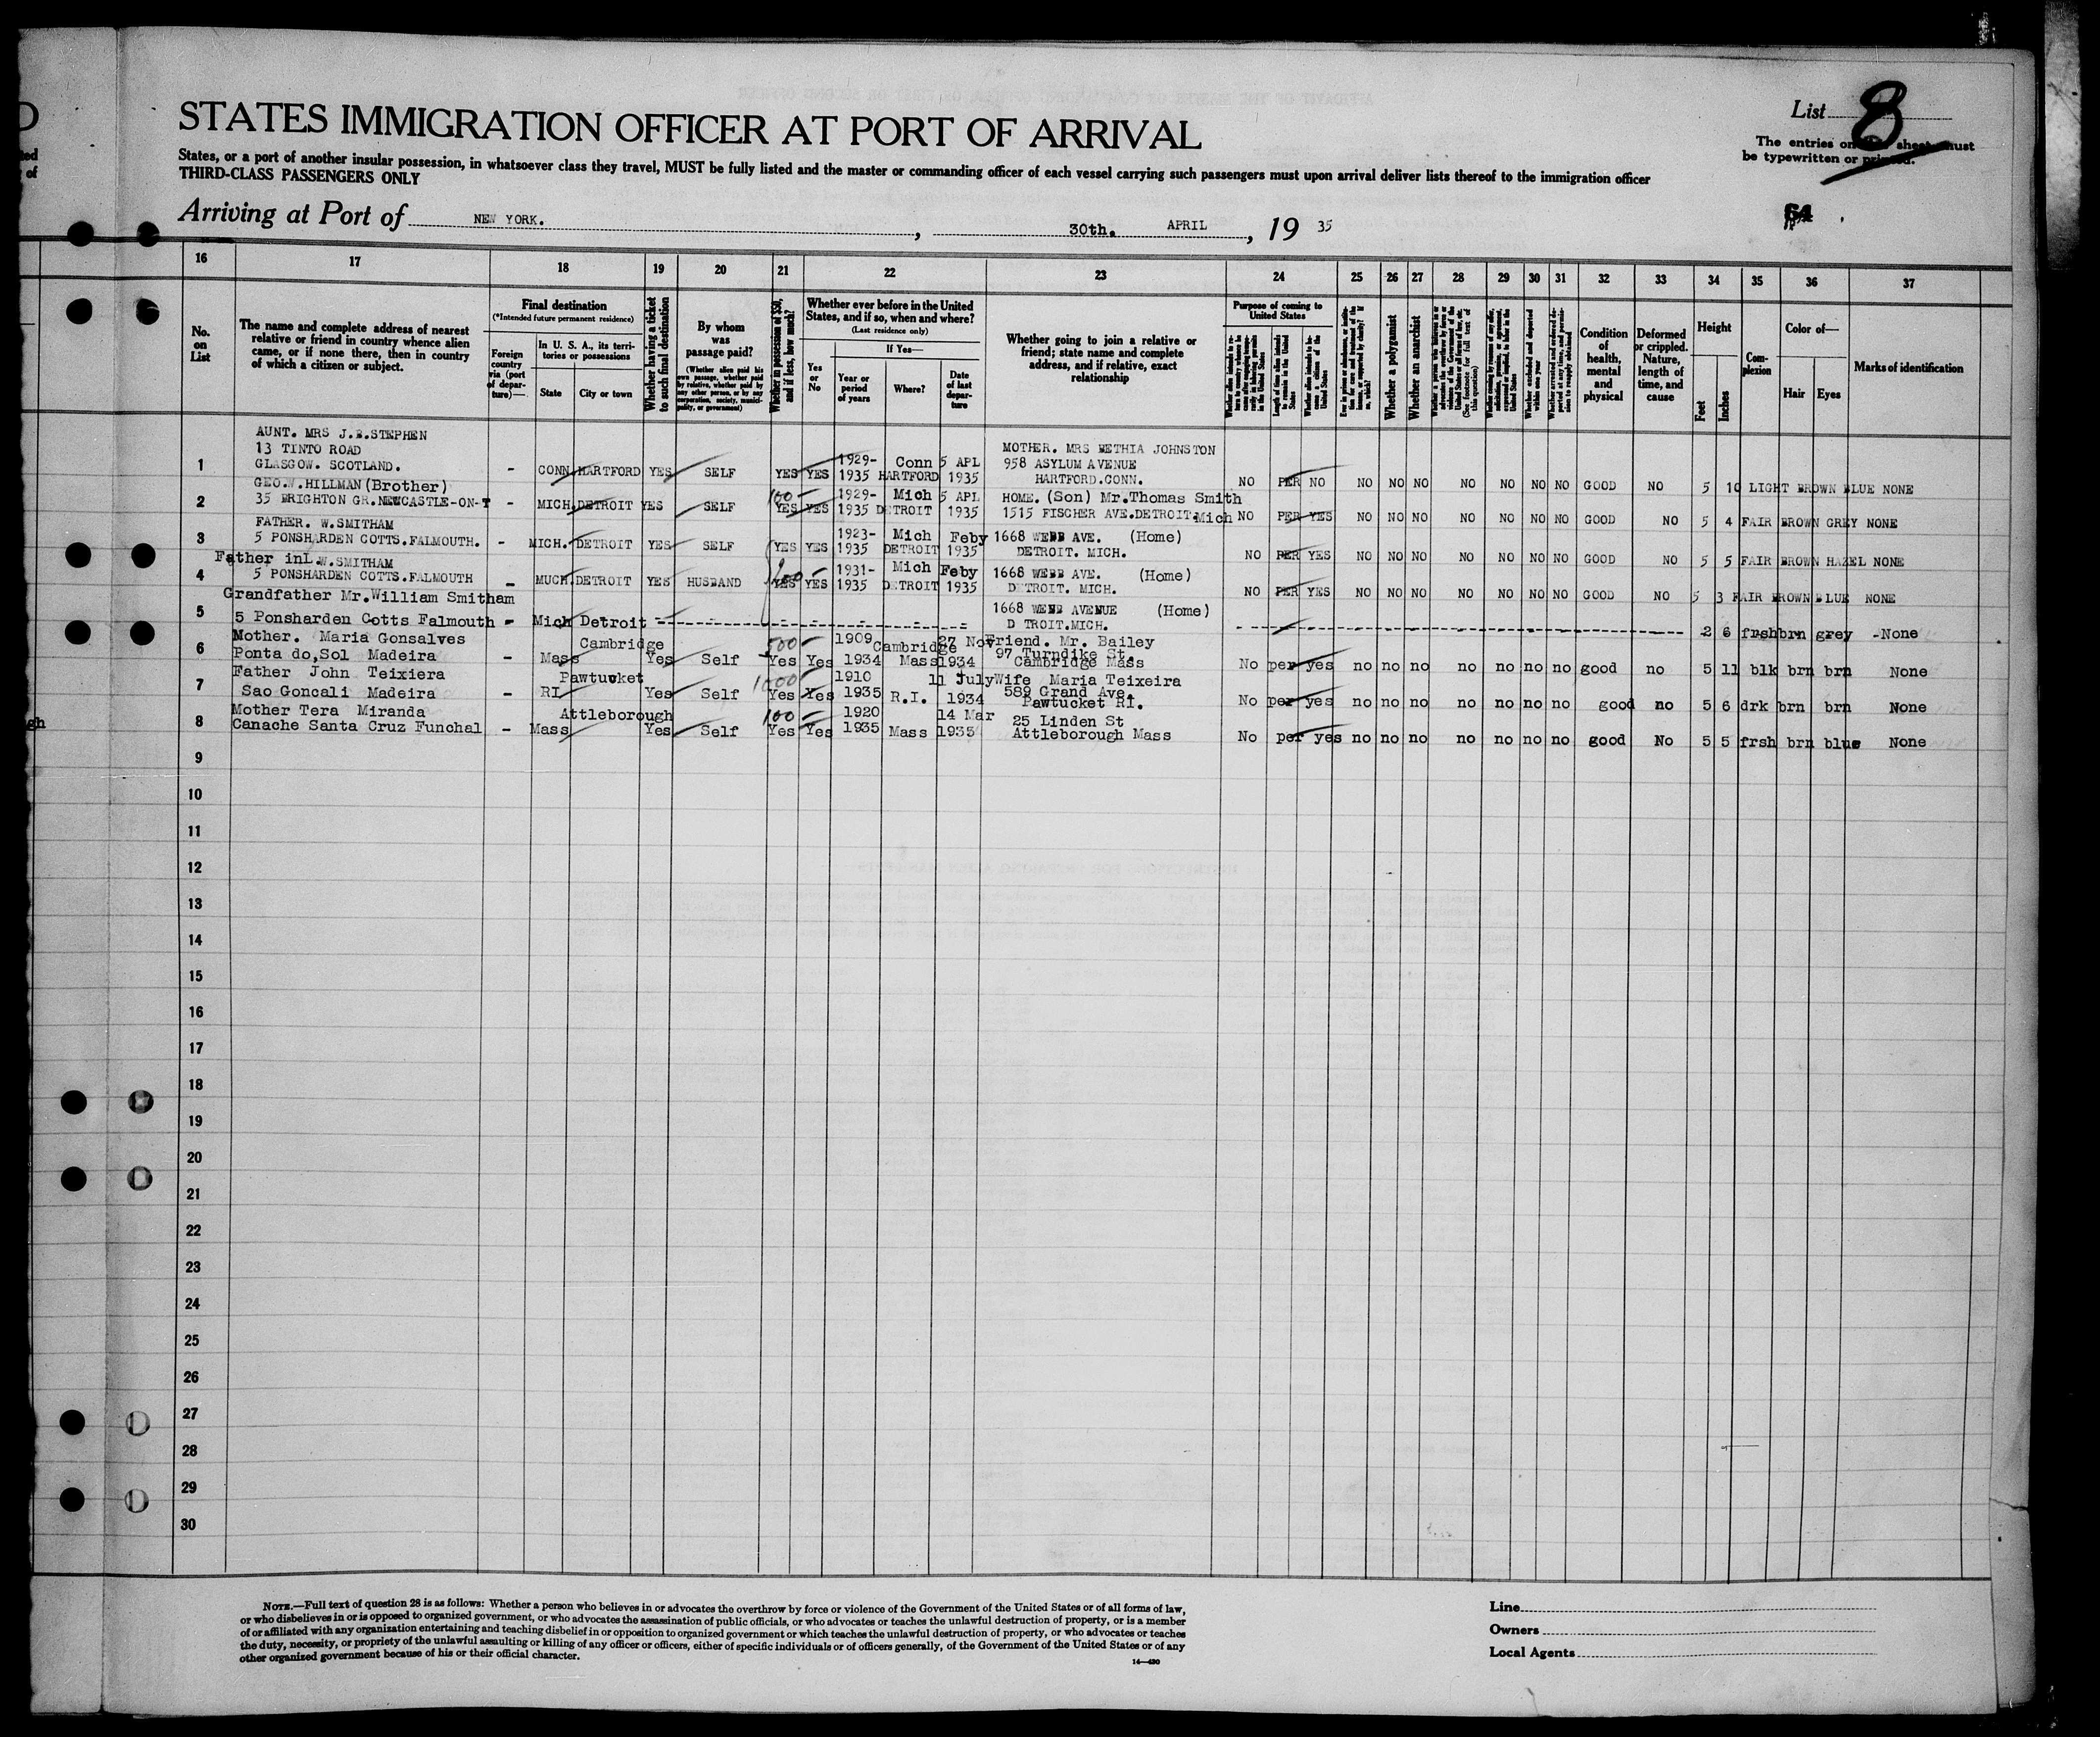 STATES IMMIGRATION OFFICER AT PORT OF ARRIVAL
List 8
The entries on sheet must
be typewritten or printed.
States, or a port of another insular possession, in whatsoever class they travel, MUST be fully listed and the master or commanding officer of each vessel carrying such passengers must upon arrival deliver lists thereof to the immigration officer
THIRD-CLASS PASSENGERS ONLY
Arriving at Port of NEW YORK. , 30th. APRIL , 19 35
64
16 17 18 19 20 21 22 23 24 25 26 27 28 29 30 31 32 33 34 35 36 37
No. on List
The name and complete address of nearest relative or friend in country whence alien came, or if none there, then in country of which a citizen or subject.
Final destination
(*Intended future permanent residence)
Foreign country via (port of departure)—
In U. S. A., its territories or possessions
State
City or town
Whether having a ticket to such final destination
By whom was passage paid?
(Whether alien paid his own passage, whether paid by relative, whether paid by any other person, or by any corporation, society, municipality, or government)
Whether in possession of $50, and if less, how much?
Whether ever before in the United States, and if so, when and where?
(Last residence only)
Yes or No
If Yes—
Year or period of years
Where?
Date of last departure
Whether going to join a relative or friend; state name and complete address, and if relative, exact relationship
Purpose of coming to United States
Length of time alien intends to remain in the United States
Whether alien intends to become a citizen of the United States
Whether a polygamist
Whether an anarchist
Condition of health, mental and physical
Deformed or crippled. Nature, length of time, and cause
Height
Feet
Inches
Complexion
Color of—
Hair
Eyes
Marks of identification
AUNT. MRS J.B.STEPHEN
13 TINTO ROAD MOTHER. MRS BETHIA JOHNSTON
1 GLASGOW. SCOTLAND. - CONN HARTFORD YES SELF YES YES 1929- 1935 Conn HARTFORD 5 APL 1935 958 ASYLUM AVENUE HARTFORD.CONN. NO PER NO NO NO NO NO NO NO NO GOOD NO 5 10 LIGHT BROWN BLUE NONE
GEO.W.HILLMAN (Brother)
2 35 BRIGHTON GR.NEWCASTLE-ON-T - MICH. DETROIT YES SELF 100- YES YES 1929- 1935 Mich DETROIT 5 APL 1935 HOME. (Son) Mr.Thomas Smith 1515 FISCHER AVE.DETROIT.Mich NO PER YES NO NO NO NO NO NO NO GOOD NO 5 4 FAIR BROWN GREY NONE
FATHER. W.SMITHAM
3 5 PONSHARDEN COTTS.FALMOUTH. - MICH. DETROIT YES SELF YES YES 1923- 1935 Mich DETROIT Feby 1935 1668 WEBB AVE. (Home) DETROIT. MICH. NO PER YES NO NO NO NO NO NO NO GOOD NO 5 5 FAIR BROWN HAZEL NONE
Father inL.W.SMITHAM
4 5 PONSHARDEN COTTS.FALMOUTH - MUCH. DETROIT YES HUSBAND YES YES 1931- 1935 Mich DETROIT Feby 1935 1668 WEBB AVE. (Home) DETROIT. MICH. NO PER YES NO NO NO NO NO NO NO GOOD NO 5 3 FAIR BROWN BLUE NONE
Grandfather Mr.William Smitham
5 5 Ponsharden Cotts Falmouth - Mich Detroit 1668 WEBB AVENUE (Home) D TROIT.MICH. 2 6 frsh brn grey -None
Mother. Maria Gonsalves
6 Ponta do,Sol Madeira - Mass Cambridge Yes Self 500- Yes Yes 1909 1934 Cambridge Mass 27 Nov 1934 Friend. Mr. Bailey 97 Turndike St. Cambridge Mass No per yes no no no no no no no good no 5 11 blk brn brn None
Father John Teixiera
7 Sao Goncali Madeira - RI Pawtucket Yes Self 1000- Yes Yes 1910 1935 R.I. 11 July 1934 Wife Maria Teixeira 589 Grand Ave. Pawtucket RI. No per yes no no no no no no no good no 5 6 drk brn brn None
Mother Tera Miranda
8 Canache Santa Cruz Funchal - Mass Attleborough Yes Self 100- Yes Yes 1920 1935 Mass 14 Mar 1935 25 Linden St Attleborough Mass No per yes no no no no no no no good No 5 5 frsh brn blue None
9
10
11
12
13
14
15
16
17
18
19
20
21
22
23
24
25
26
27
28
29
30
NOTE.—Full text of question 28 is as follows: Whether a person who believes in or advocates the overthrow by force or violence of the Government of the United States or of all forms of law,
or who disbelieves in or is opposed to organized government, or who advocates the assassination of public officials, or who advocates or teaches the unlawful destruction of property, or is a member
of or affiliated with any organization entertaining and teaching disbelief in or opposition to organized government or which teaches the unlawful destruction of property, or who advocates or teaches
the duty, necessity, or propriety of the unlawful assaulting or killing of any officer or officers, either of specific individuals or of officers generally, of the Government of the United States or of any
other organized government because of his or their official character.
14—430
Line
Owners
Local Agents